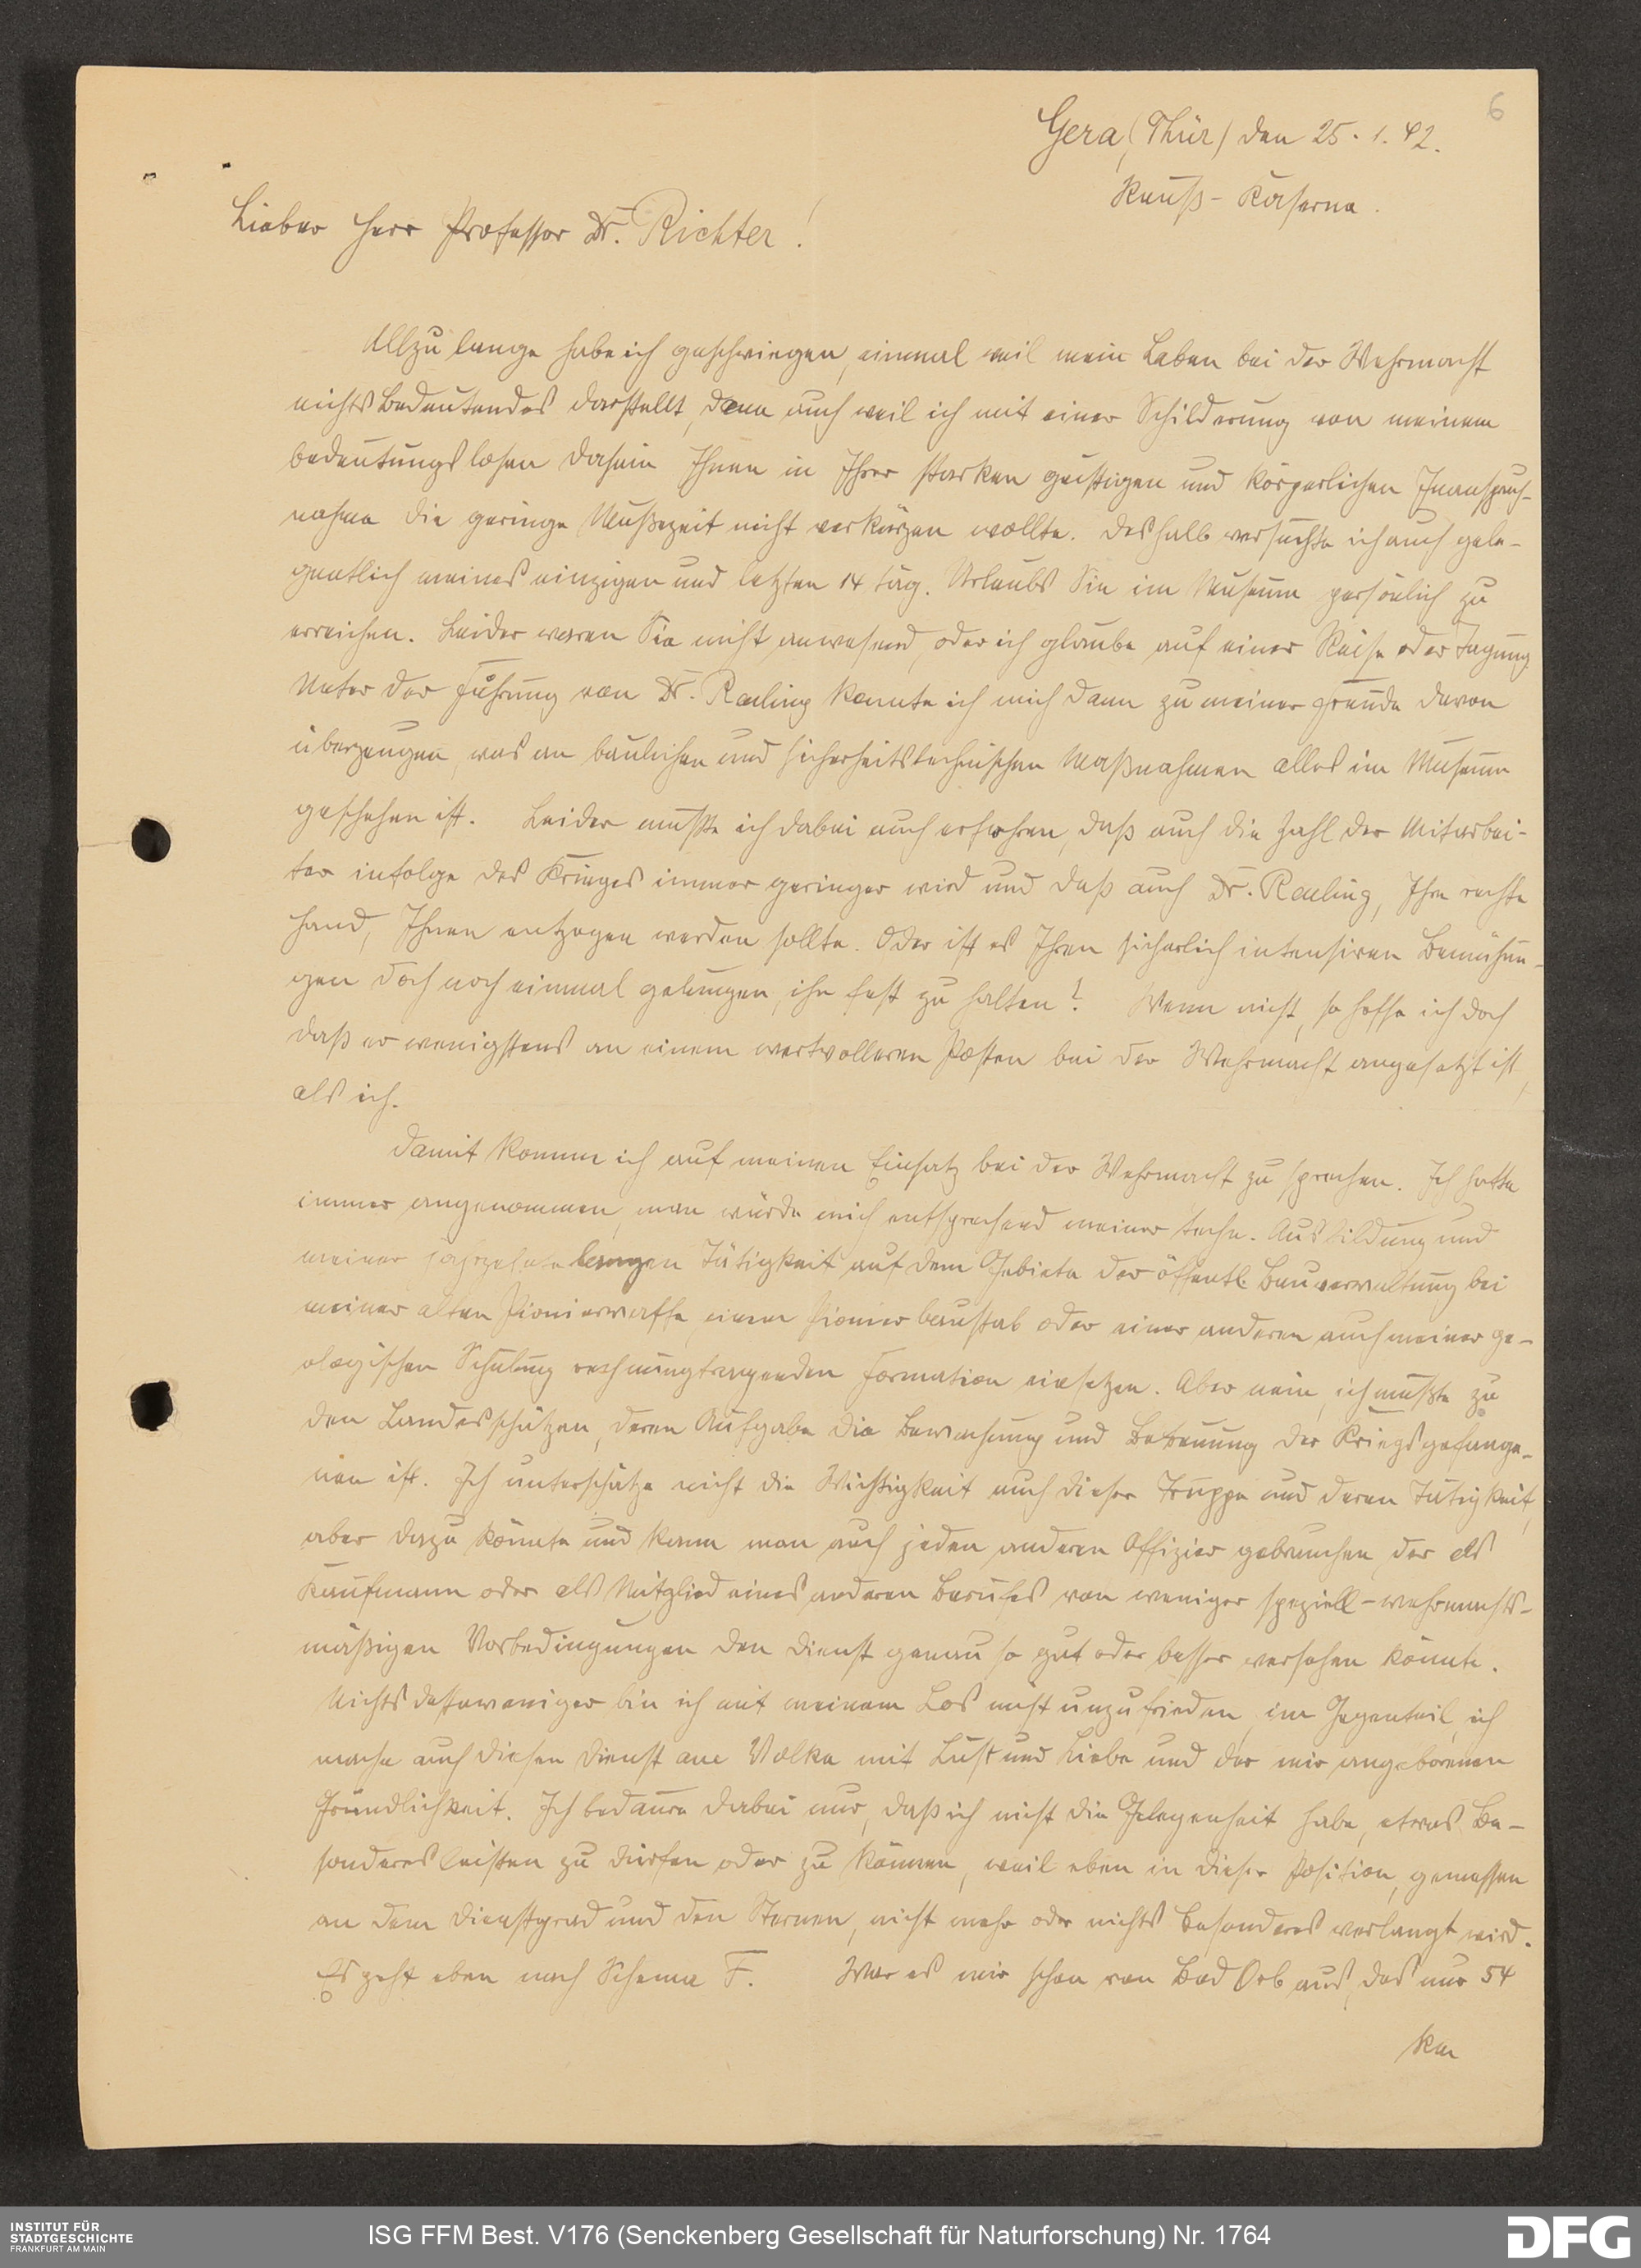 6
Gera, (Thür) den 25.1.42.
Reuß-Kaserne.
Lieber Herr Professor Dr. Richter!
Allzu lange habe ich geschwiegen, einmal weil mein Leben bei der Wehrmacht
nichts Bedeutendes darstellt, dann auch weil ich mit einer Schilderung von meinem
bedeutungslosen Dasein Ihnen in Ihrer starken geistigen und körperlichen Inanspruch-
nahme die geringe Mußezeit nicht verkürzen wollte. Deshalb versuchte ich auch gele-
gentlich meines einzigen und letzten 14 täg. Urlaubs Sie im Museum persönlich zu
erreichen. Leider waren Sie nicht anwesend, oder ich glaube auf einer Reise oder Tagung.
Unter der Führung von Dr. Rauling konnte ich mich dann zu meiner Freude davon
überzeugen, was an baulichen und sicherheitstechnischen Maßnahmen alles im Museum
geschehen ist. Leider mußte ich dabei auch erfahren, daß auch die Zahl der Mitarbei-
ter infolge des Krieges immer geringer wird und daß auch Dr. Rauling, Ihre rechte
Hand, Ihnen entzogen werden sollte. Oder ist es Ihren sicherlich intensiven Bemühun-
gen doch noch einmal gelungen, ihn fest zu halten? Wenn nicht, so hoffe ich doch
daß er wenigstens an einem wertvolleren Posten bei der Wehrmacht angesetzt ist,
als ich.
Damit komme ich auf meinen Einsatz bei der Wehrmacht zu sprechen. Ich hatte
immer angenommen, man würde mich entsprechend meiner techn. Ausbildung und
meiner jahrzehntelangen Tätigkeit auf dem Gebiete der öffentl. Bauverwaltung bei
meiner alten Pionierwaffe, einem Pionierbaustab oder einer anderen auch meiner ge-
ologischen Schulung rechnungtragenden Formation einsetzen. Aber nein, ich mußte zu
den Landesschützen, deren Aufgabe die Bewachung und Betreuung der Kriegsgefange-
nen ist. Ich unterschätze nicht die Wichtigkeit auch dieser Truppe und deren Tätigkeit,
aber dazu könnte und kann man auch jeden anderen Offizier gebrauchen, der als
Kaufmann oder als Mitglied eines anderen Berufes von weniger speziell-wehrmachts-
mäßigen Vorbedingungen den Dienst genau so gut oder besser versehen könnte.
Nichts destoweniger bin ich mit meinem Los nicht unzufrieden, im Gegenteil, ich
mache auch diesen Dienst am Volke mit Lust und Liebe und der mir angeborenen
Gründlichkeit. Ich bedaure dabei nur, daß ich nicht die Gelegenheit habe, etwas Be-
sonderes leisten zu dürfen oder zu können, weil eben in dieser Position, gemessen
an dem Dienstgrad und den Sternen, nicht mehr oder nichts Besonderes verlangt wird.
Es geht eben nach Schema F. War es mir schon von Bad Orb aus, das nur 54
km
INSTITUT FÜR
STADTGESCHICHTE
FRANKFURT AM MAIN
ISG FFM Best. V176 (Senckenberg Gesellschaft für Naturforschung) Nr. 1764
DFG